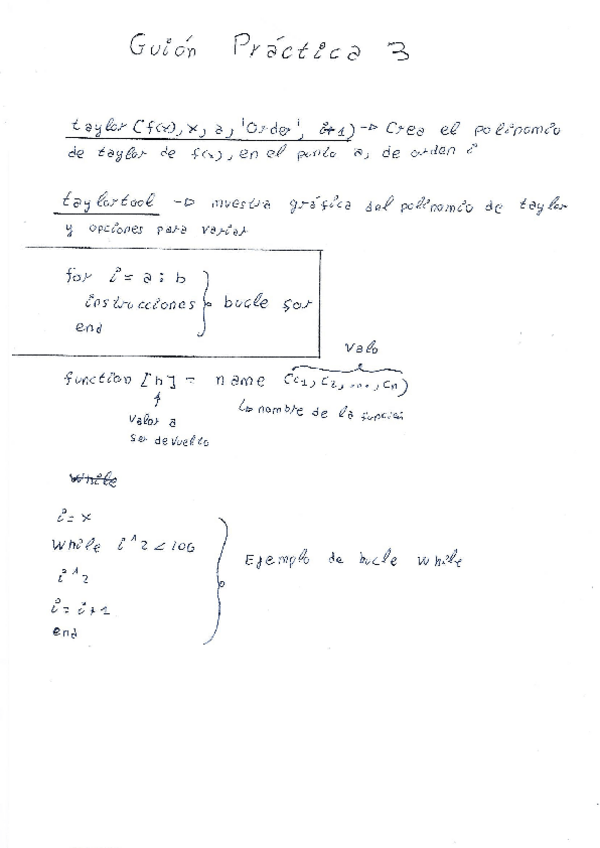 Guión Práctica 3
taylor(f(x), x, a, 'Order', i+1) → Crea el polinomio
de taylor de f(x), en el punto a, de orden i
taylortool → muestra gráfica del polinomio de taylor
y opciones para variar
for i = a : b
instrucciones
end
bucle for
Valo
function [h] = name (c1, c2, ..., cn)
↳ nombre de la función
Valor a
ser devuelto
while
i = x
while i^2 < 100
i^2
i = i+1
end
Ejemplo de bucle while